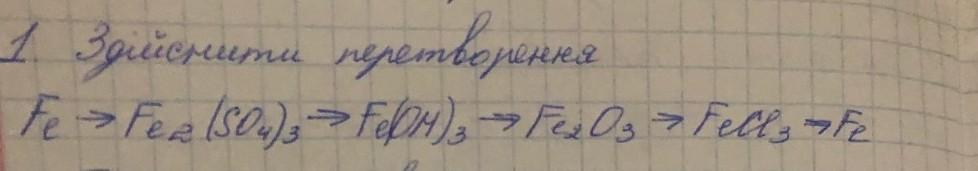 1. Здійснити перетворення
Fe → Fe₂(SO₄)₃ → Fe(OH)₃ → Fe₂O₃ → FeCl₃ → Fe